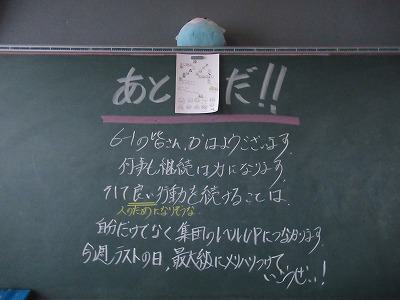 あと だ!!
6-1の皆さん、おはようございます。
何事も継続は力になります。
そして良い行動を続けることは、
人のためになりそうな
自分だけでなく集団のレベルUPにつながります。
今週テストの日、最大級にメリハリつけて
いこうぜぃ!